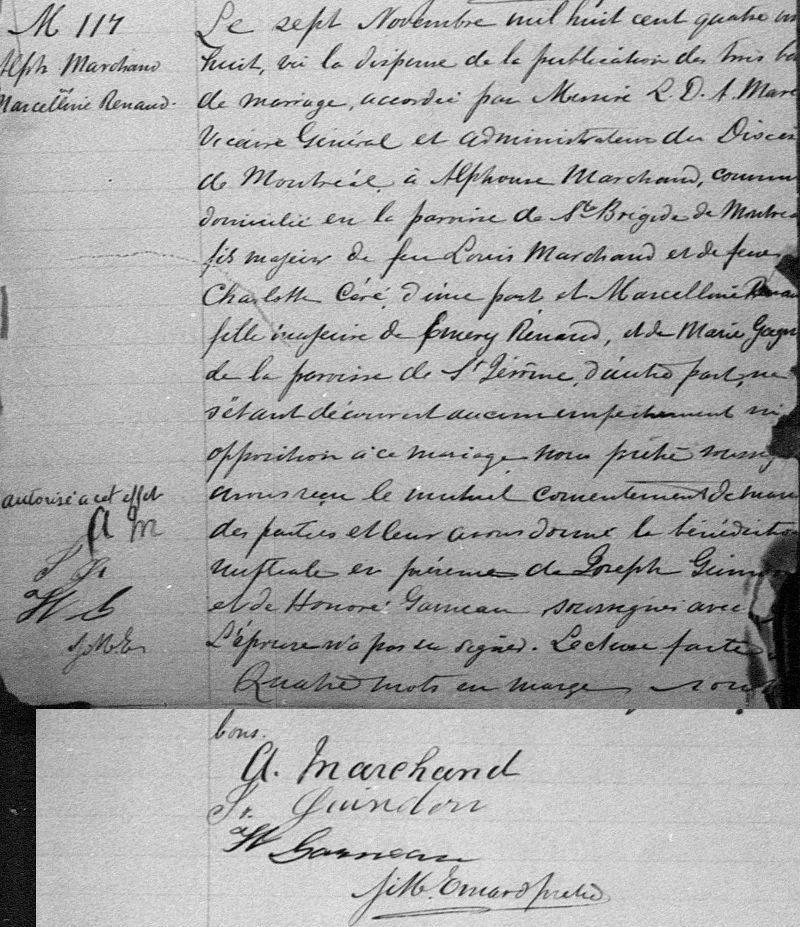 M 117
Alph Marchand
Marcelline Renaud.
Le sept Novembre mil huit cent quatre vin
huit, vu la dispense de la publication des trois ba
de mariage, accordée par Messire L. D. A. Mare
Vicaire Général et administrateur du Diocè
de Montréal, à Alphonse Marchand, commis
domicilié en la paroisse de Ste Brigide de Montréa
fils majeur de feu Louis Marchand et de feue
Charlotte Céré, d'une part et Marcelline Renau
fille majeure de Emery Renaud, et de Marie Gagn
de la paroisse de St Jérôme, d'autre part, ne
s'étant découvert aucun empêchement ni
opposition à ce mariage nous prêtre soussig
avons reçu le mutuel consentement de mari
des parties et leur avons donné la bénédictio
nuptiale en présence de Joseph Guindon
et de Honoré Garneau soussignés avec
L'épouse n'a pas su signer. Lecture faite
Quatre mots en marge sont
autorisé à cet effet
A M
J G
H G
J.M.E.
bons.
A. Marchand
Js. Guindon
H Garneau
J. M. Emard prêtre